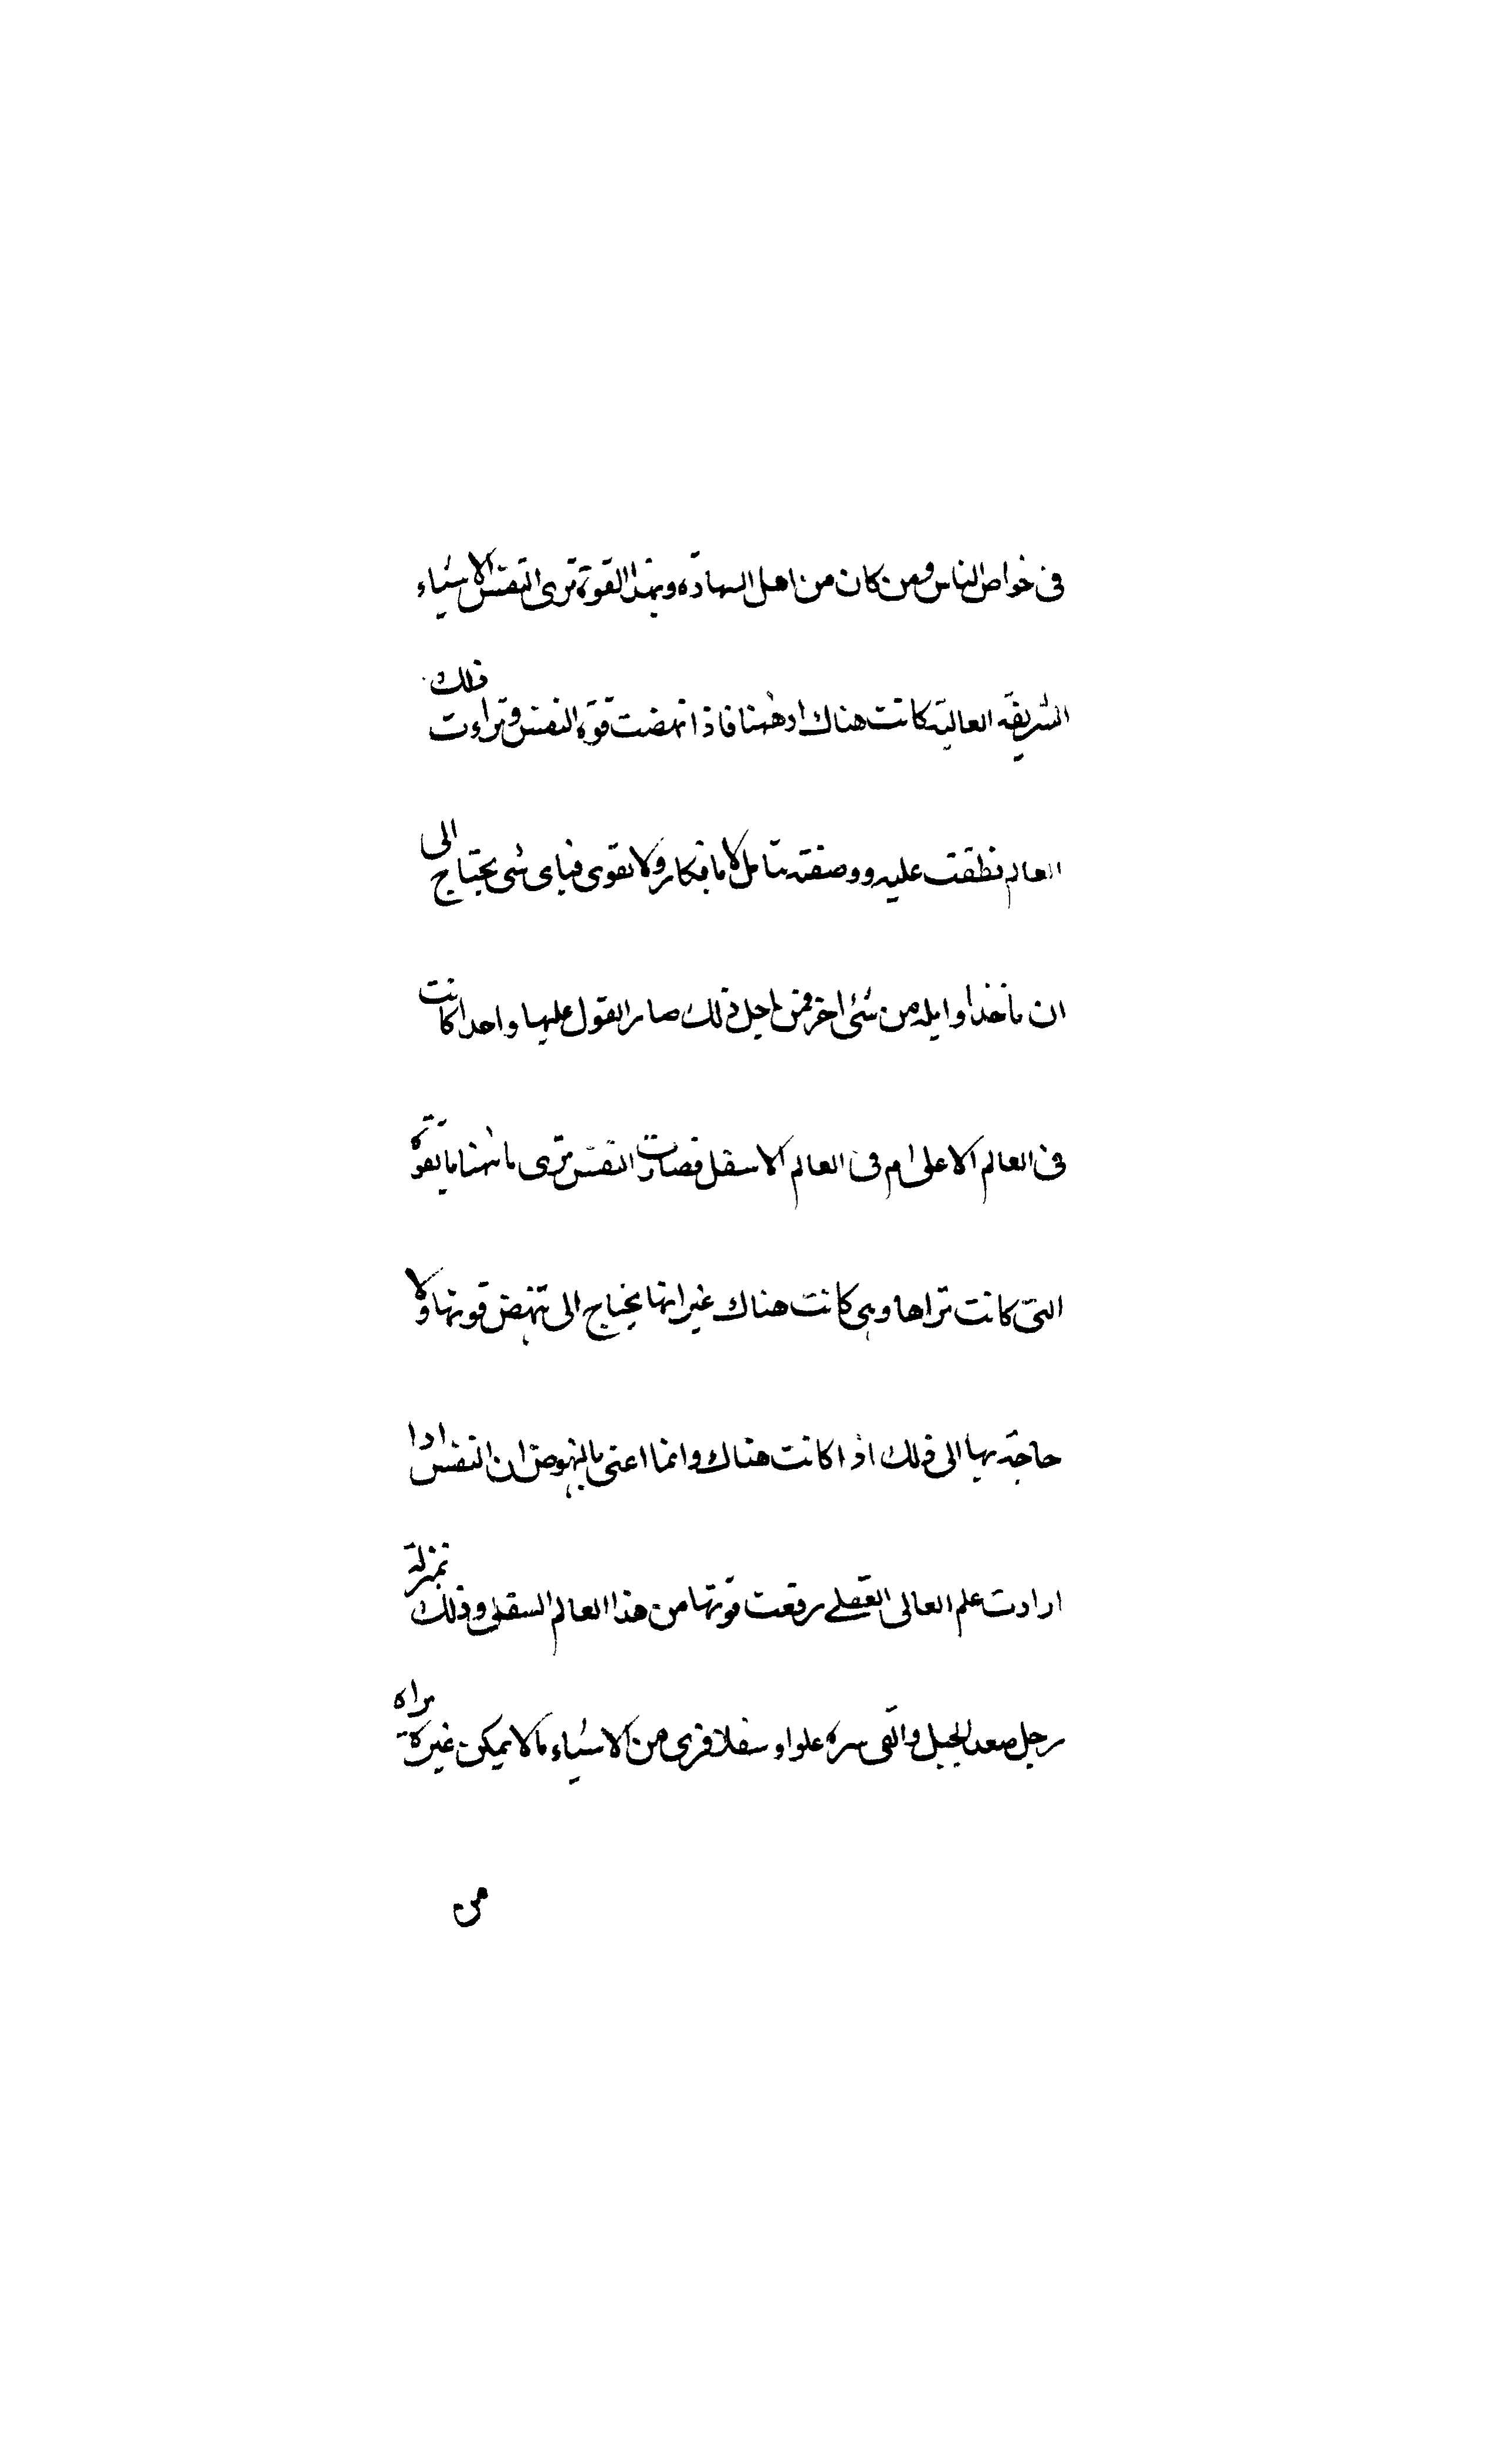 فى خواص الناس ومن كان من اهل السهادة وبهذا القوة ترى النفس الاشياء
الشريفة العالية كانت هناك ادههنا فاذا نهضت قوة النفس وتراءت ذلك
العالم نطقت عليه ووصفته بتامل لا بافكار ولا تقوى فباى شى يحتاج الى
ان ماخذ اوايله من شئى اخر فمن اجل ذلك صار القول عليها واحدا كانت
فى العالم الاعلى ام فى العالم الاسفل فصارت النفس ترى ما ههنا بالقوة
التى كانت تراها وهى كانت هناك غير انها يحتاج الى تنهض قوتها ولا
حاجة بها الى ذلك اذا كانت هناك وانما اعنى بالنهوض ان النفس اذا
ارادت علم العالى العقلى رفعت قوتها من هذا العالم السفلى وذلك بمنزلة
رجل صعد الجبل والقى سره علوا و سفلا فرى من الاشياء مالا يمكن غيره يراه
من